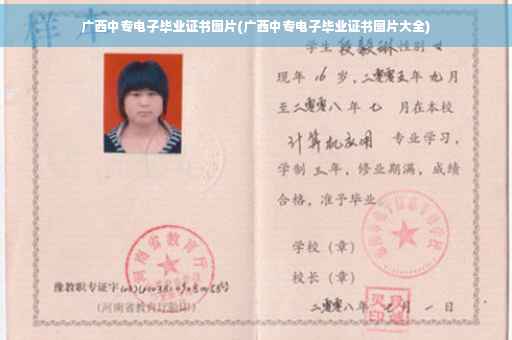 广西中专电子毕业证书图片(广西中专电子毕业证书图片大全)
样本
学生段毅琳性别女
现年16岁，二零零五年九月
至二零零八年七月在本校
计算机应用 专业学习，
学制三年，修业期满，成绩
合格，准予毕业
学校（章）
校长（章）
二零零八年七月一日
河南省教育厅
豫教职专证字
(河南省教育厅验印)